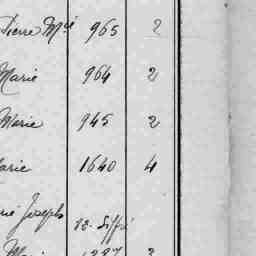 Pierre Mie 965 2
Marie 964 2
Marie 945 2
arie 1640 4
Joseph
Marie